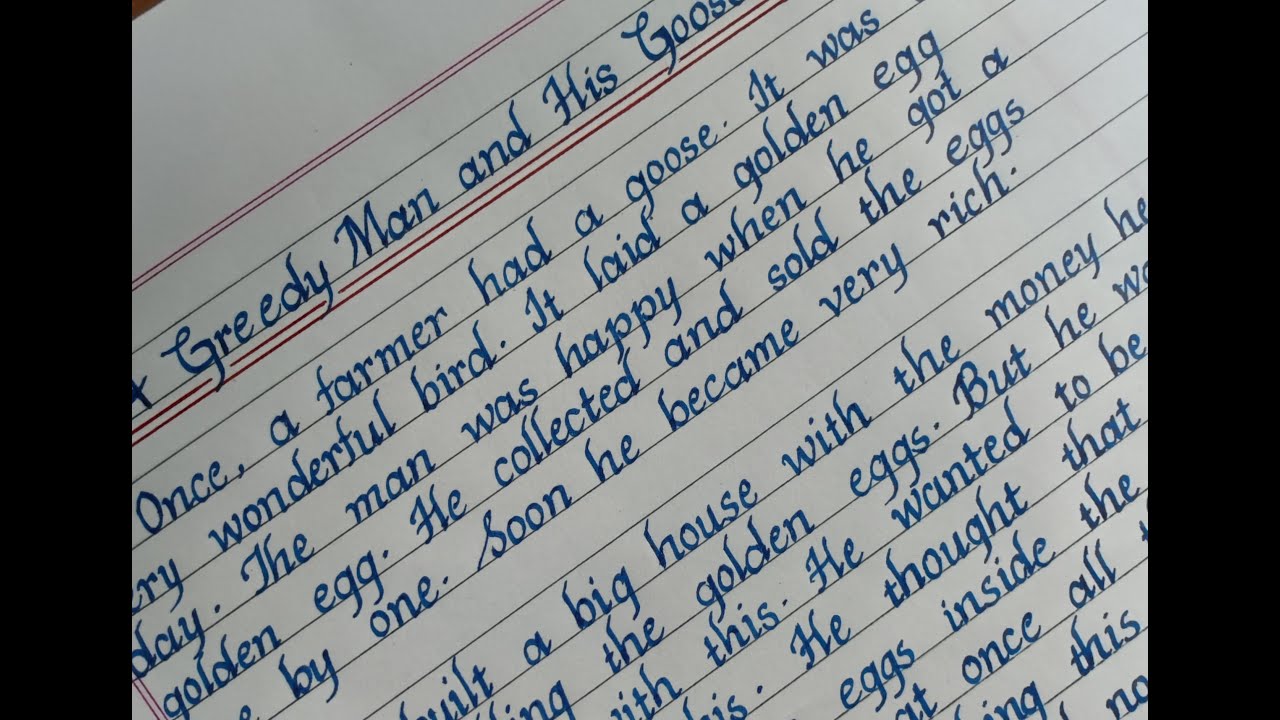 Greedy Man and His Goose
Once, a farmer had a goose. It was
ery wonderful bird. It laid a golden egg
day. The man was happy when he got a
golden egg. He collected and sold the eggs
e by one. Soon he became very rich.
uilt a big house with the money he
ling the golden eggs. But he wa
ith this. He wanted to be
his. He thought that
eggs inside the
at once all
ing this
no